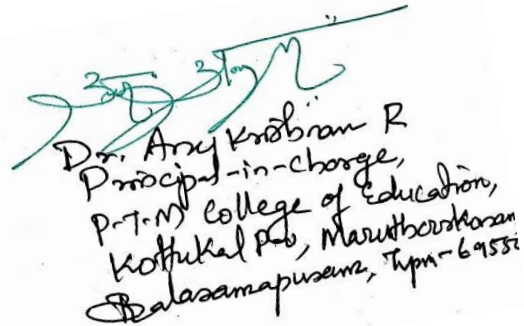 Dr. Anij Krishnan R
Principal-in-charge,
P.T.M College of Education,
Kottukal P.O, Maruthoorkonam
Balaramapuram, Tvpm-69550